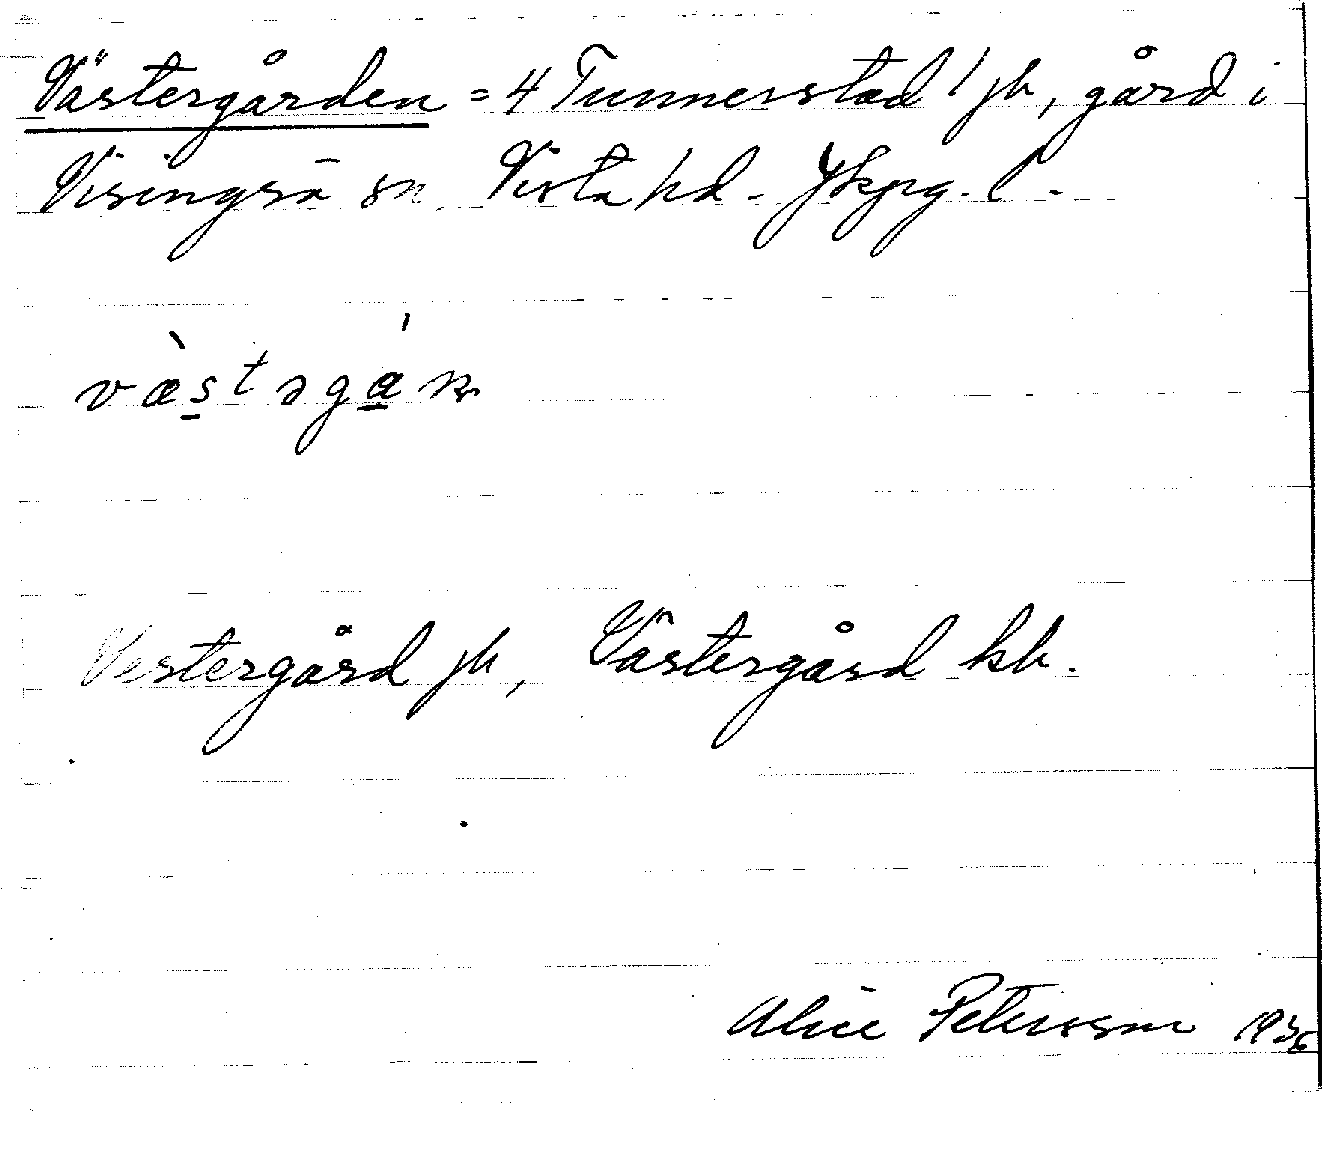 Västergården = 4 Tunnerstad 1 jb, gård i
Visingsö sn Vista hd. Jkpg. l.
væ̀stəgɑ́n
Vestergård jb, Västergård kb.
Alice Petersson 1936